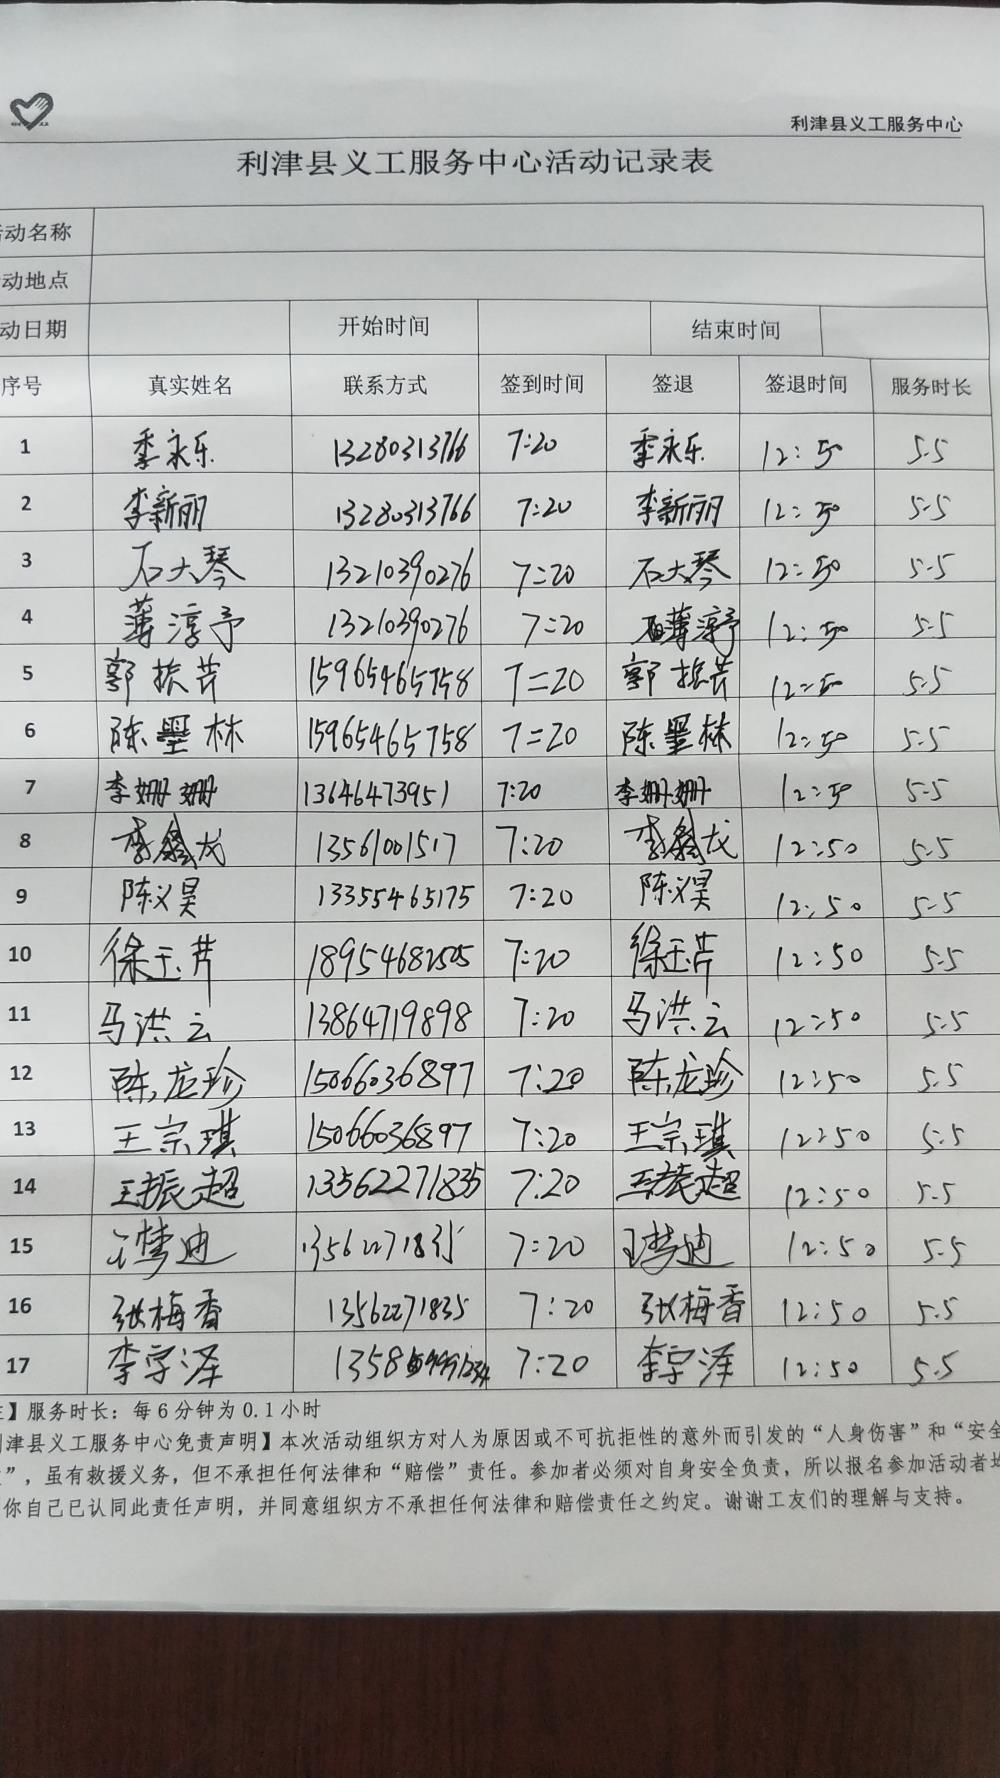 利津县义工服务中心
利津县义工服务中心活动记录表
动名称
动地点
动日期 开始时间 结束时间
序号 真实姓名 联系方式 签到时间 签退 签退时间 服务时长
1 季永乐 13280313766 7:20 季永乐 12:50 5.5
2 李新丽 13280313766 7:20 李新丽 12:50 5.5
3 石大琴 13210390276 7:20 石大琴 12:50 5.5
4 薄淳予 13210390276 7:20 薄淳予 12:50 5.5
5 郭振芳 15965465758 7:20 郭振芳 12:50 5.5
6 陈墨林 15965465758 7:20 陈墨林 12:50 5.5
7 李姗姗 13646473951 7:20 李姗姗 12:50 5.5
8 李鑫龙 13561001517 7:20 李鑫龙 12:50 5.5
9 陈义昊 13355465175 7:20 陈义昊 12:50 5.5
10 徐玉芹 18954682505 7:20 徐玉芹 12:50 5.5
11 马洪云 13864719898 7:20 马洪云 12:50 5.5
12 陈龙珍 15066036897 7:20 陈龙珍 12:50 5.5
13 王宗琪 15066036897 7:20 王宗琪 12:50 5.5
14 王振超 13562271835 7:20 王振超 12:50 5.5
15 王梦迪 13562271835 7:20 王梦迪 12:50 5.5
16 张梅香 13562271835 7:20 张梅香 12:50 5.5
17 李宇泽 7:20 李宇泽 12:50 5.5
】服务时长：每6分钟为0.1小时
津县义工服务中心免责声明】本次活动组织方对人为原因或不可抗拒性的意外而引发的“人身伤害”和“安全
”，虽有救援义务，但不承担任何法律和“赔偿”责任。参加者必须对自身安全负责，所以报名参加活动者均
你自己已认同此责任声明，并同意组织方不承担任何法律和赔偿责任之约定。谢谢工友们的理解与支持。